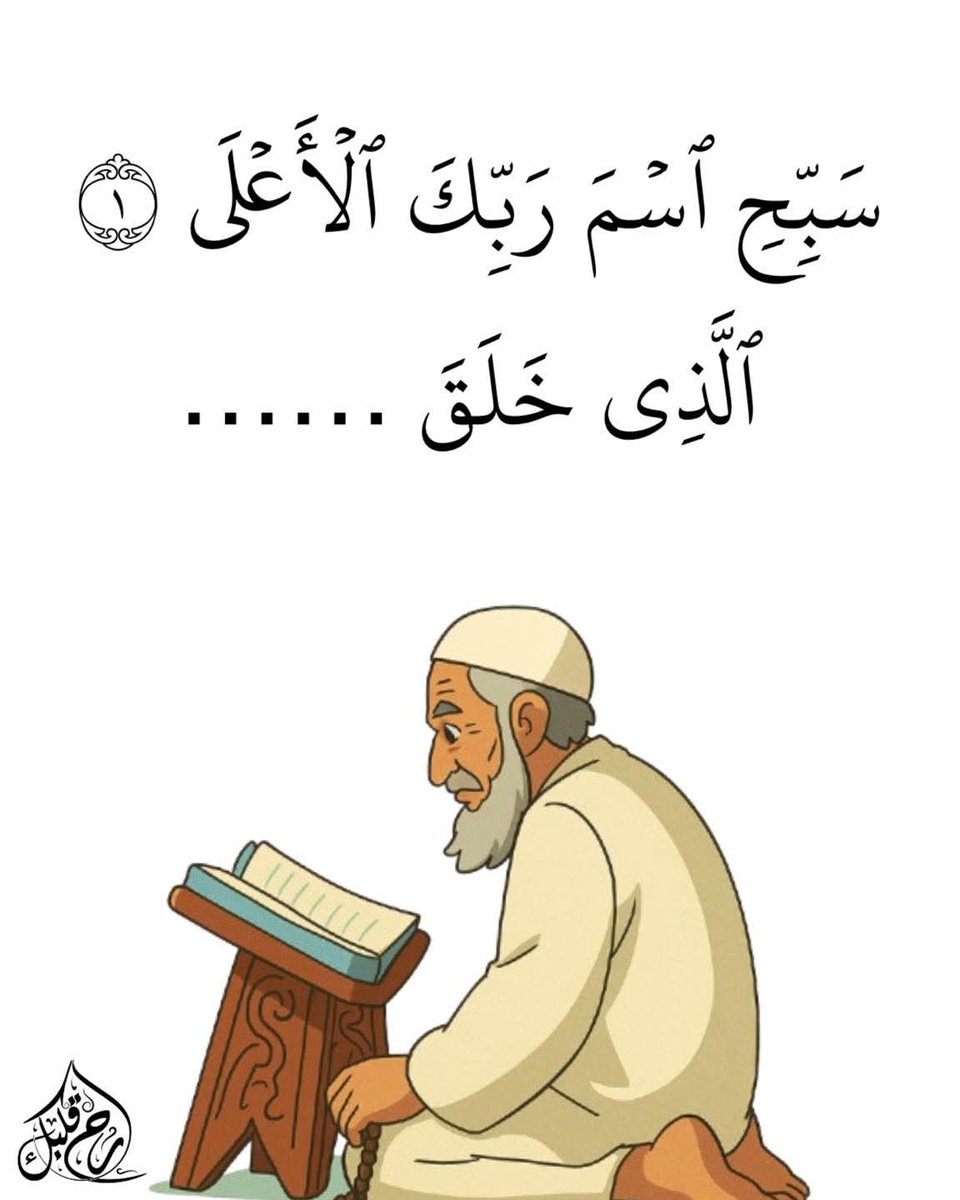 سَبِّحِ ٱسْمَ رَبِّكَ ٱلْأَعْلَى ١
ٱلَّذِى خَلَقَ ......
ارح قلبك